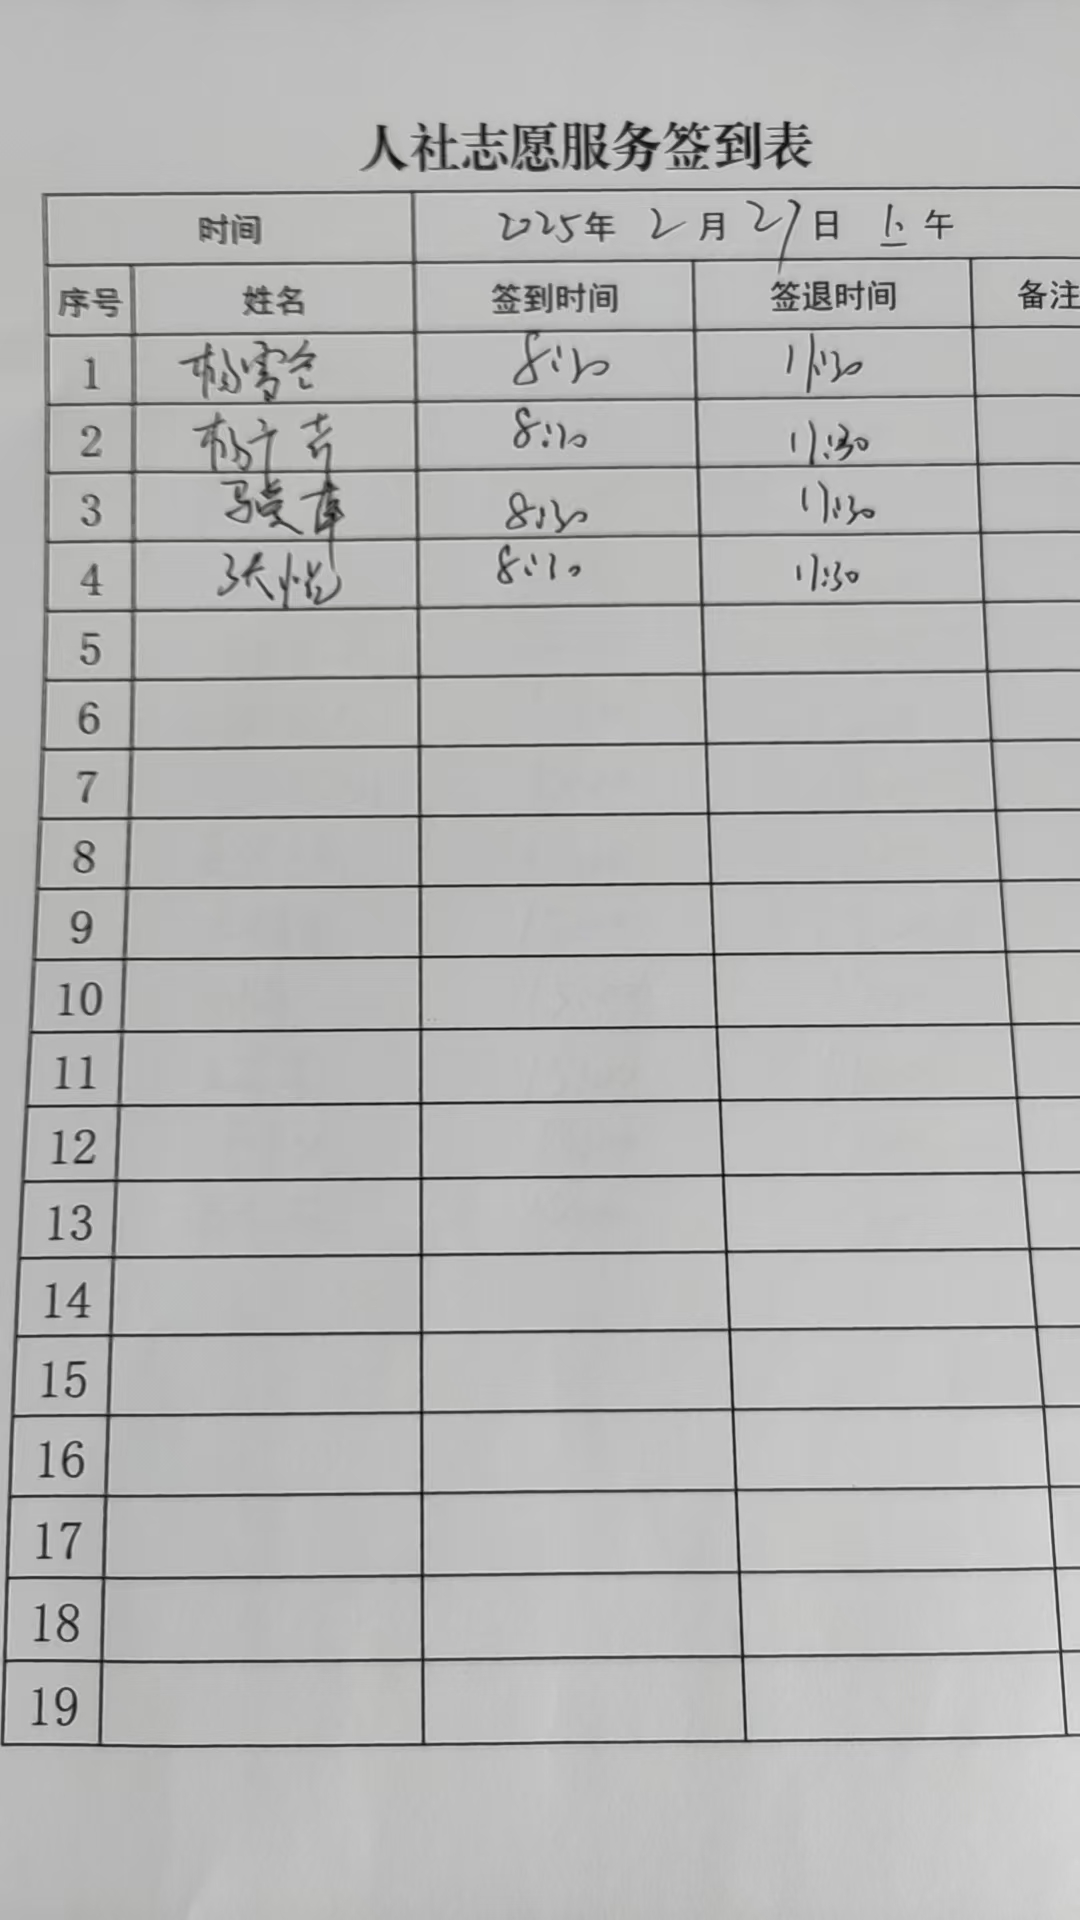 人社志愿服务签到表
时间 2025年 2月 27日 上午
序号 姓名 签到时间 签退时间 备注
1 杨雪 8:30 11:30
2 杨 8:30 11:30
3 马 8:30 11:30
4 张悦 8:30 11:30
5
6
7
8
9
10
11
12
13
14
15
16
17
18
19